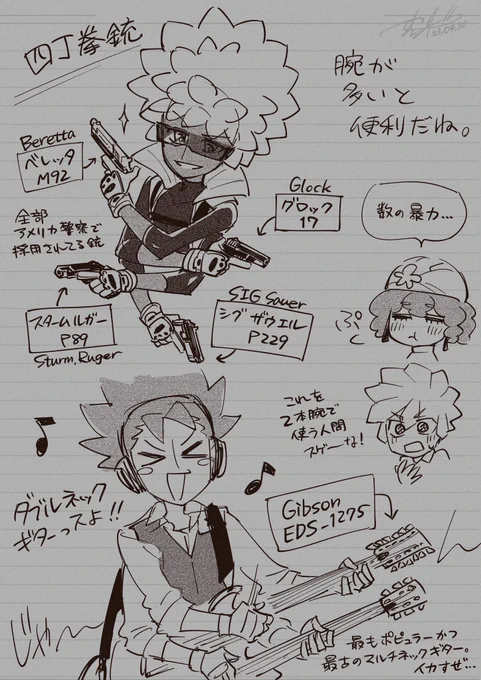 四丁拳銃
腕が
多いと
便利だね。
Beretta
ベレッタ
M92
Glock
グロック
17
全部
アメリカ警察で
採用されてる銃
数の暴力…
スタームルガー
P89
Sturm, Ruger
SIG Sauer
シグ ザウエル
P229
ぷく
これを
2本腕で
使う人間
スゲーな!
ダブルネック
ギターっスよ!!
Gibson
EDS-1275
じゃ〜ん
最もポピュラーかつ
最古のマルチネックギター。
イカすぜ…